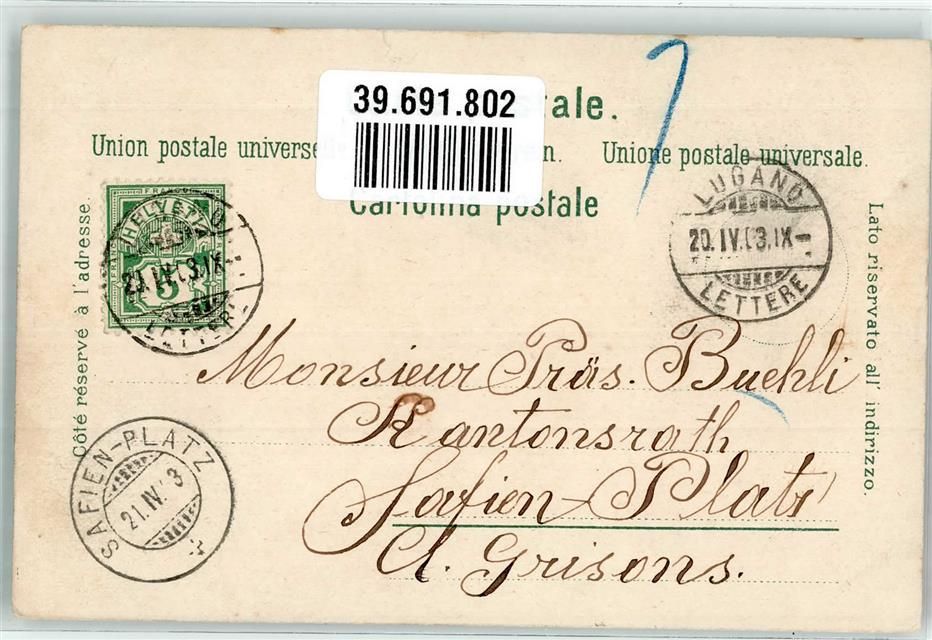 39.691.802
tale.
Union postale universe n. Unione postale universale.
Cartolina postale
Côté réservé à l'adresse.
Lato riservato all' indirizzo.
FRANCO
HELVETIA
5
20.IV.03.IX-
LETTERE
LUGANO
20.IV.03.IX-
LETTERE
Monsieur Präs. Buehli
Kantonsrath
Safien Platz
Ct. Grisons.
SAFIEN-PLATZ
21.IV.03